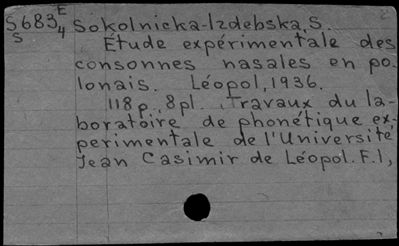 E
S6834 Sokolnicka-Izdebska, S.
S
Étude expérimentale des
consonnes nasales en po-
lonais. Léopol, 1936.
118 p., 8 pl. Travaux du la-
boratoire de phonétique ex-
perimentale de l'Université
Jean Casimir de Léopol. F. 1,